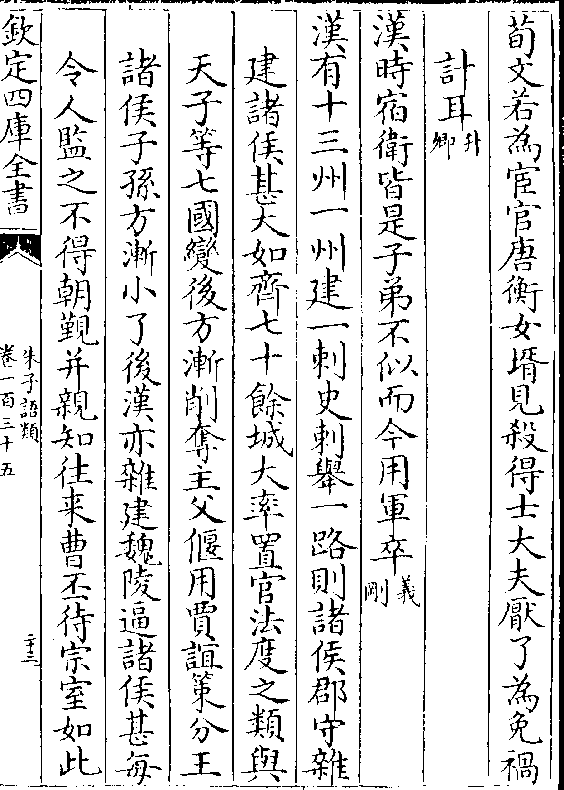 荀文若為宦官唐衡女壻見殺得士大夫厭了為免禍
計耳升卿
漢時宿衛皆是子弟不似而今用軍卒義剛
漢有十三州一州建一刺史刺舉一路則諸侯郡守雜
建諸侯甚大如齊七十餘城大率置官法度之類與
天子等七國變後方漸削奪主父偃用賈誼策分王
諸侯子孫方漸小了後漢亦雜建魏陵逼諸侯甚每
令人監之不得朝覲并親知往来曹丕待宗室如此
欽定四庫全書
朱子語類
卷一百三十五
二十三